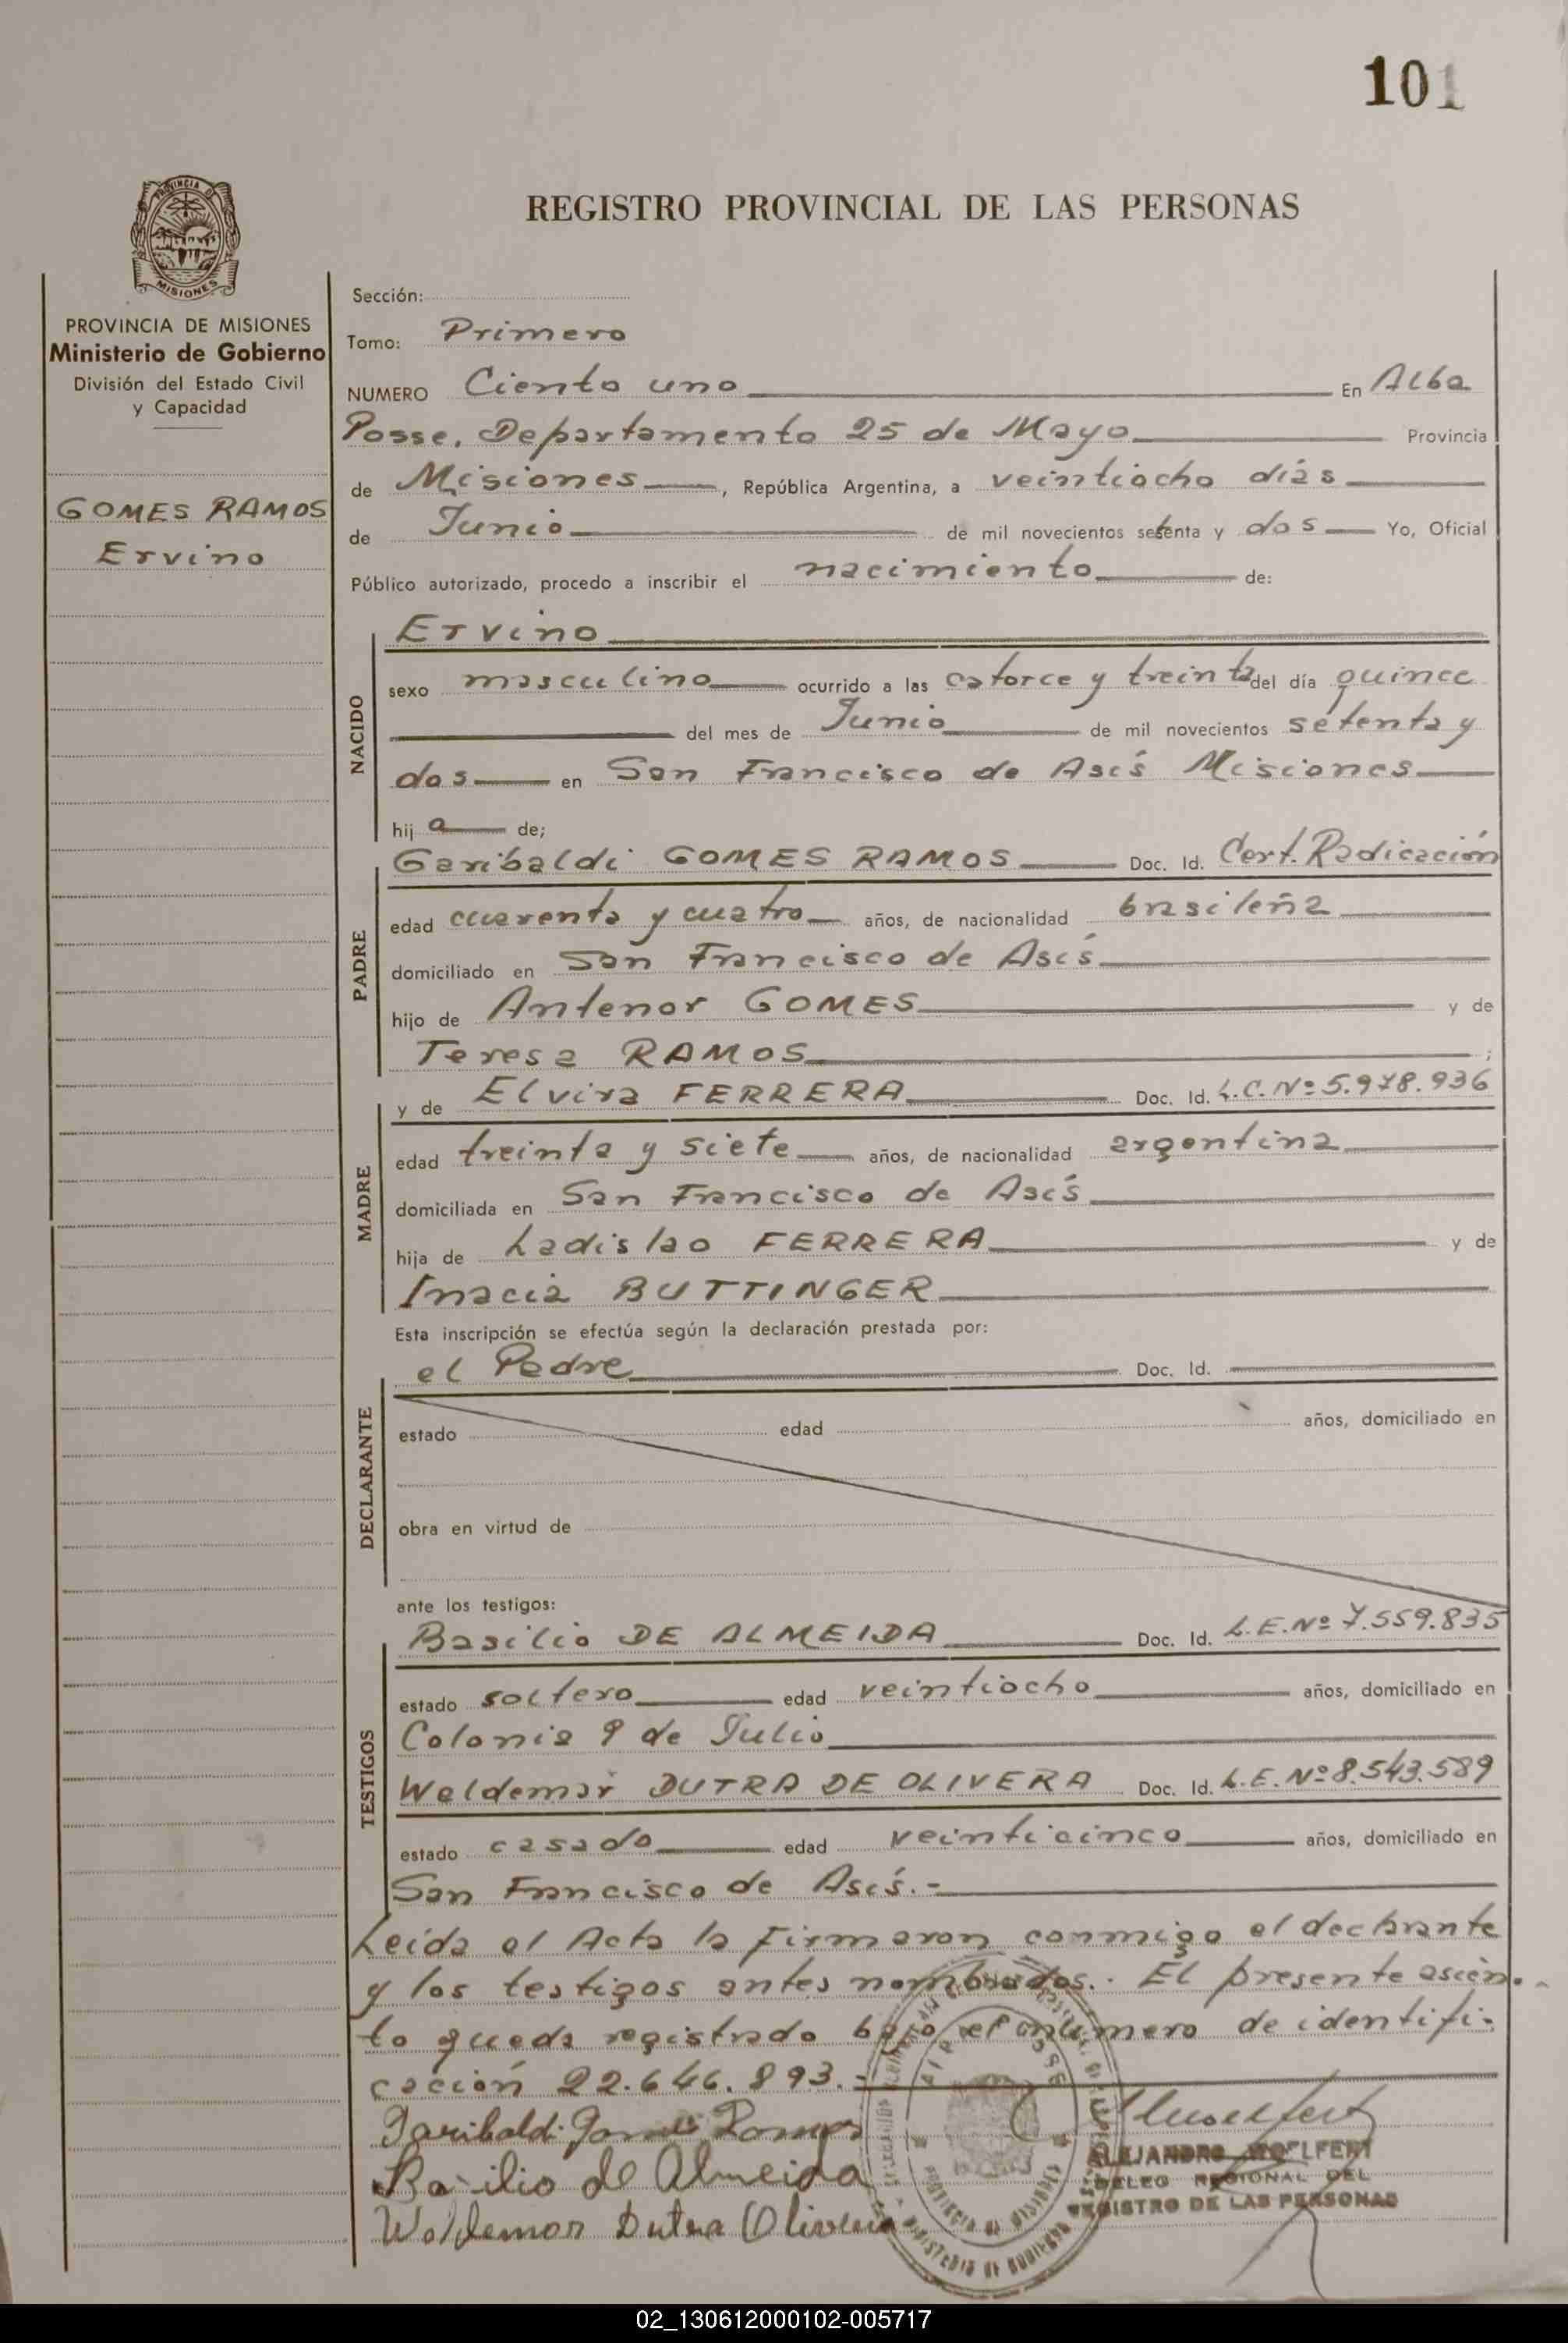 101
PROVINCIA DE MISIONES
REGISTRO PROVINCIAL DE LAS PERSONAS
PROVINCIA DE MISIONES
Ministerio de Gobierno
División del Estado Civil
y Capacidad
GOMES RAMOS
Ervino
Sección:
Tomo: Primero
NUMERO Ciento uno En Alba
Posse, Departamento 25 de Mayo Provincia
de Misiones, República Argentina, a veintiocho días
de Junio de mil novecientos setenta y dos Yo, Oficial
Público autorizado, procedo a inscribir el nacimiento de:
NACIDO
Ervino
sexo masculino ocurrido a las catorce y treinta del día quince
del mes de Junio de mil novecientos setenta y
dos en San Francisco de Asís Misiones
hij o de;
PADRE
Garibaldi GOMES RAMOS Doc. Id. Cert. Radicación
edad cuarenta y cuatro años, de nacionalidad brasileña
domiciliado en San Francisco de Asís
hijo de Antenor GOMES y de
Teresa RAMOS ;
MADRE
y de Elvira FERRERA Doc. Id. L.C. Nº 5.978.936
edad treinta y siete años, de nacionalidad argentina
domiciliada en San Francisco de Asís
hija de Ladislao FERRERA y de
Inacia BUTTINGER
Esta inscripción se efectúa según la declaración prestada por:
DECLARANTE
el Padre Doc. Id.
estado edad años, domiciliado en
obra en virtud de
ante los testigos:
TESTIGOS
Basilio DE ALMEIDA Doc. Id. L.E. Nº 7.559.835
estado soltero edad veintiocho años, domiciliado en
Colonia 9 de Julio
Waldemar DUTRA DE OLIVERA Doc. Id. L.E. Nº 8.543.589
estado casado edad veinticinco años, domiciliado en
San Francisco de Asís.-
Leída el Acta la firmaron conmigo el declarante
y los testigos antes nombrados.. El presente asien-
to queda registrado bajo el número de identifi-
cación 22.646.893.-
Garibaldi Gomes Ramos
Basilio de Almeida
Waldemar Dutra Olivera
ALEJANDRO WOELFERT
DELEG REGIONAL DEL
REGISTRO DE LAS PERSONAS
PROVINCIA DE MISIONES
MINISTERIO DE GOBIERNO
02_130612000102-005717